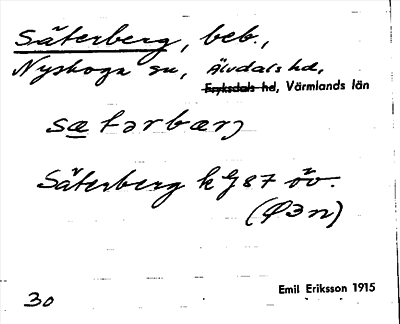 Säterberg, beb.,
Nyskoga sn, Älvdals hd,
Fryksdals hd, Värmlands län
sætərbærj
Säterberg k G 87 öv.
(Ø3n)
Emil Eriksson 1915
30